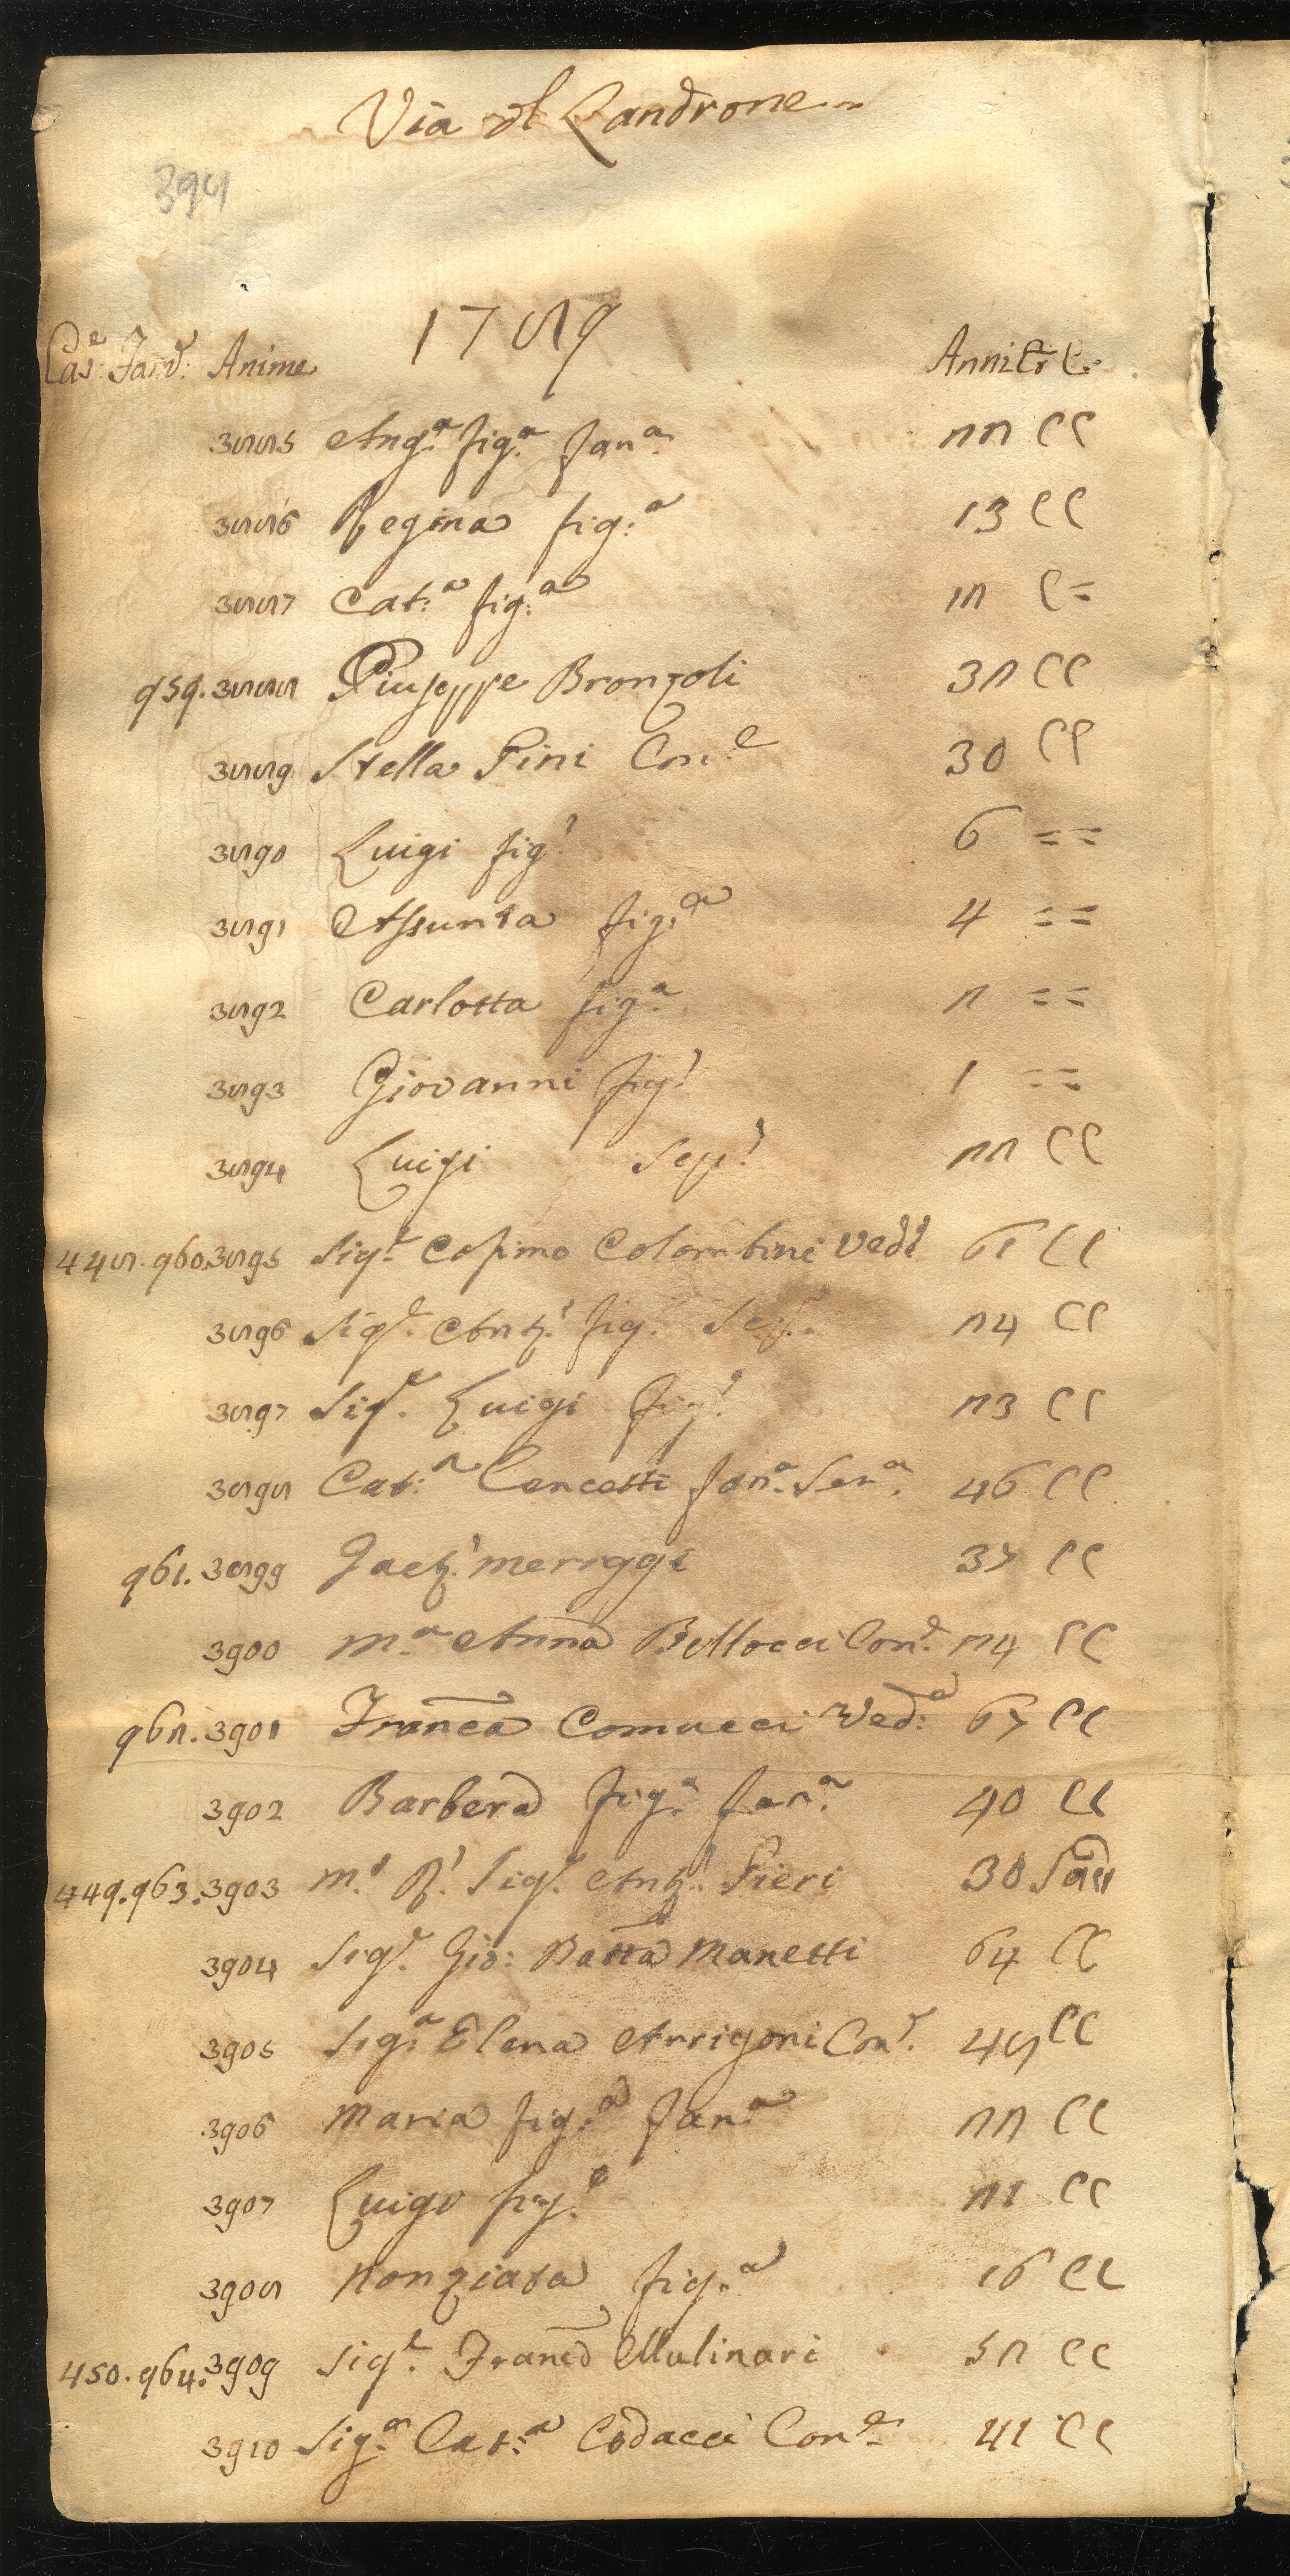 Via dl Landrone
394
1789
Cas.e Fav.e Anime Anni Cr C.
3885 Ang.a fig.a fan.a 22 CC
3886 Regina fig.a 13 CC
3887 Cat.a fig.a 12 C=
959. 3888 Giuseppe Bronzoli 32 CC
3889 Stella Pini Con.e 30 CC
3890 Luigi fig.o 6 ==
3891 Assunta fig.a 4 ==
3892 Carlotta fig.a 2 ==
3893 Giovanni fig.o 1 ==
3894 Luigi 22 CC
448. 960. 3895 Sig.e Cosimo Colombini Ved.o 61 CC
3896 Sig.e Ant.o fig. 24 CC
3897 Sig.e Luigi fig.o 23 CC
3898 Cat.a Cencetti fan.a Ser.a 46 CC
961. 3899 Gaet.o Meriggi 37 CC
3900 M.a Anna Bellocci Con.e 24 CC
962. 3901 Franca Comucci Ved.a 67 CC
3902 Barbera fig.a fan.a 40 CC
449. 963. 3903 M.o R.o Sig.e Ant.o Pieri 30 Sac
3904 Sig.e Gio: Batta Manetti 64 CC
3905 Sig.a Elena Arrigoni Con.e 48 CC
3906 Maria fig.a fan.a 22 CC
3907 Luigi fig.o 21 CC
3908 Nonziata fig.a 16 CC
450. 964. 3909 Sig.e Franco Mulinari 52 CC
3910 Sig.a Cat.a Codacci Con.e 41 CC